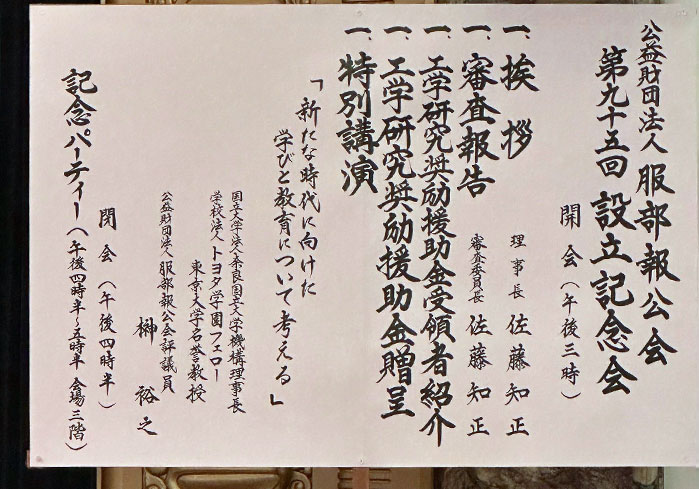 公益財団法人 服部報公会
第九十五回 設立記念会
開会(午後三時)
一、挨拶
理事長 佐藤知正
一、審査報告
審査委員長 佐藤知正
一、工学研究奨励援助金受領者紹介
一、工学研究奨励援助金贈呈
一、特別講演
「新たな時代に向けた
学びと教育について考える」
国立大学法人奈良国立大学機構理事長
学校法人トヨタ学園フェロー
東京大学名誉教授
公益財団法人 服部報公会評議員
榊 裕之
閉会(午後四時半)
記念パーティー(午後四時半~五時半 会場三階)